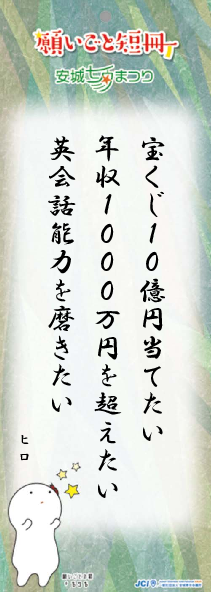 願いごと短冊
安城七夕まつり
宝くじ10億円当てたい
年収1000万円を超えたい
英会話能力を磨きたい
ヒロ
JCI